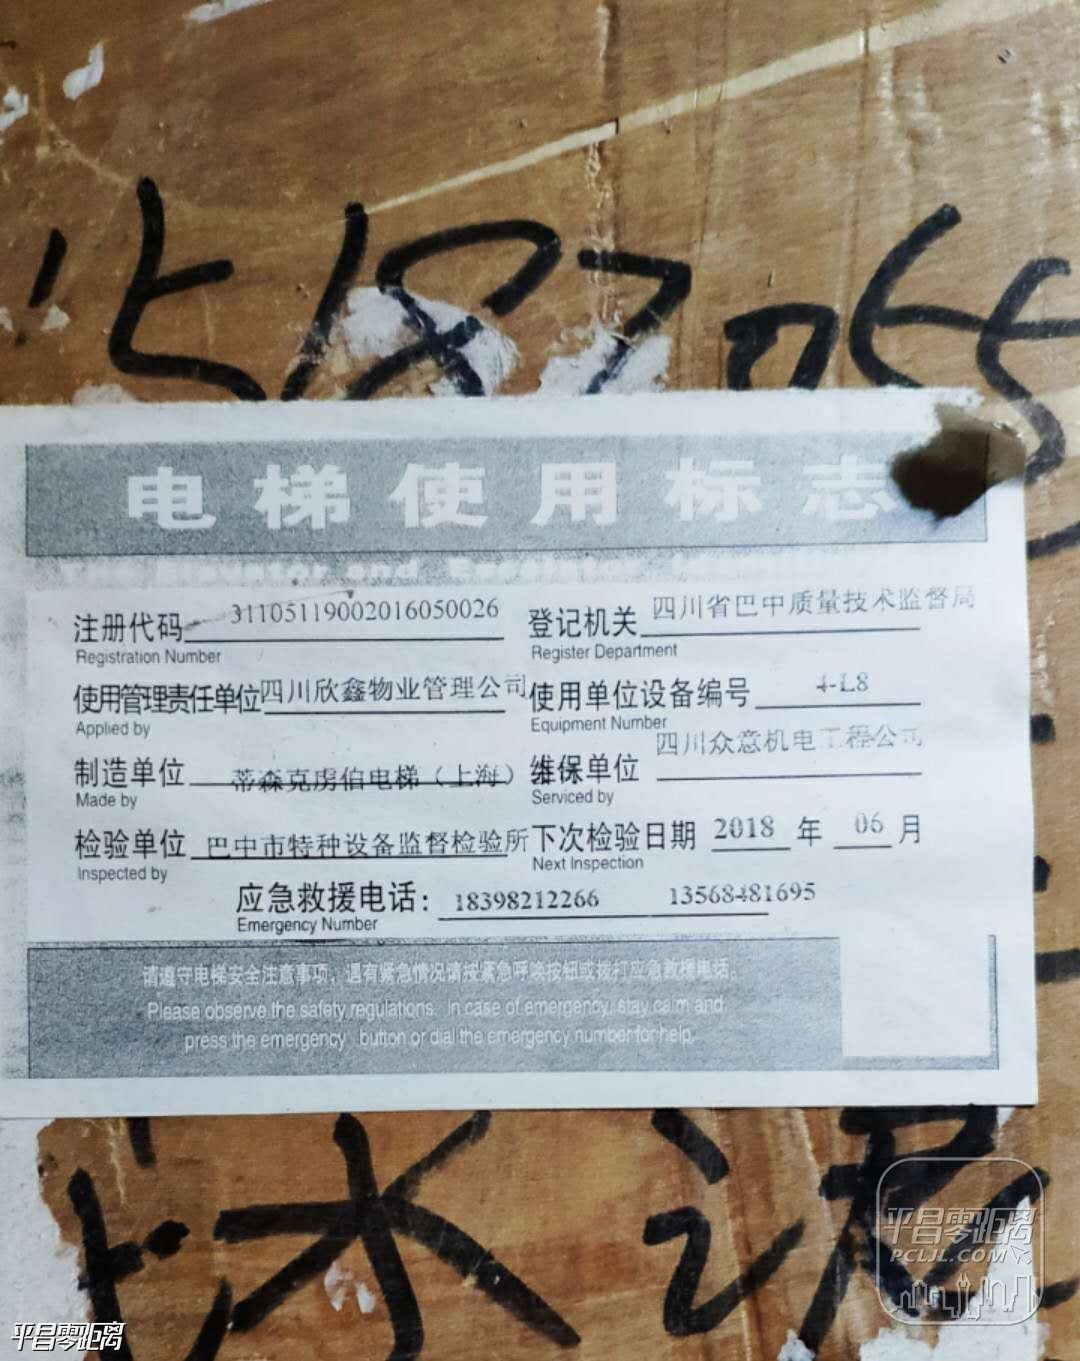 电梯使用标志
注册代码 31105119002016050026 登记机关 四川省巴中质量技术监督局
Registration Number Register Department
使用管理责任单位 四川欣鑫物业管理公司 使用单位设备编号 4-L8
Applied by Equipment Number
制造单位 蒂森克虏伯电梯（上海） 维保单位 四川众意机电工程公司
Made by Serviced by
检验单位 巴中市特种设备监督检验所 下次检验日期 2018 年 06 月
Inspected by Next Inspection
应急救援电话： 18398212266 13568481695
Emergency Number
请遵守电梯安全注意事项，遇有紧急情况请按紧急呼唤按钮或拨打应急救援电话。
Please observe the safety regulations. in case of emergency, stay calm and
press the emergency button or dial the emergency number for help.
水泥
平昌零距离
PCLJL.COM
平昌零距离